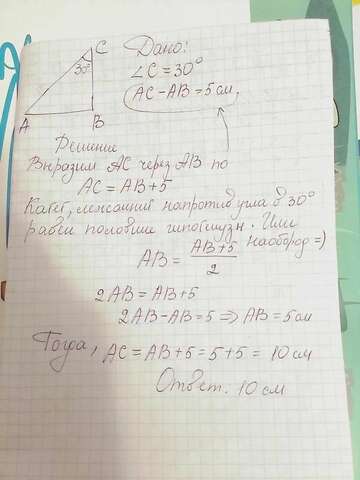 Дано:
C
30°
∠C = 30°
AC - AB = 5 см
A
B
Решение
Выразим AC через AB
AC = AB + 5
Катет, лежащий напротив угла в 30°
равен половине гипотенузы. Или
наоборот =)
AB = AB+5 / 2
2AB = AB + 5
2AB - AB = 5 ⇒ AB = 5 см
Тогда, AC = AB + 5 = 5 + 5 = 10 см
Ответ. 10 см